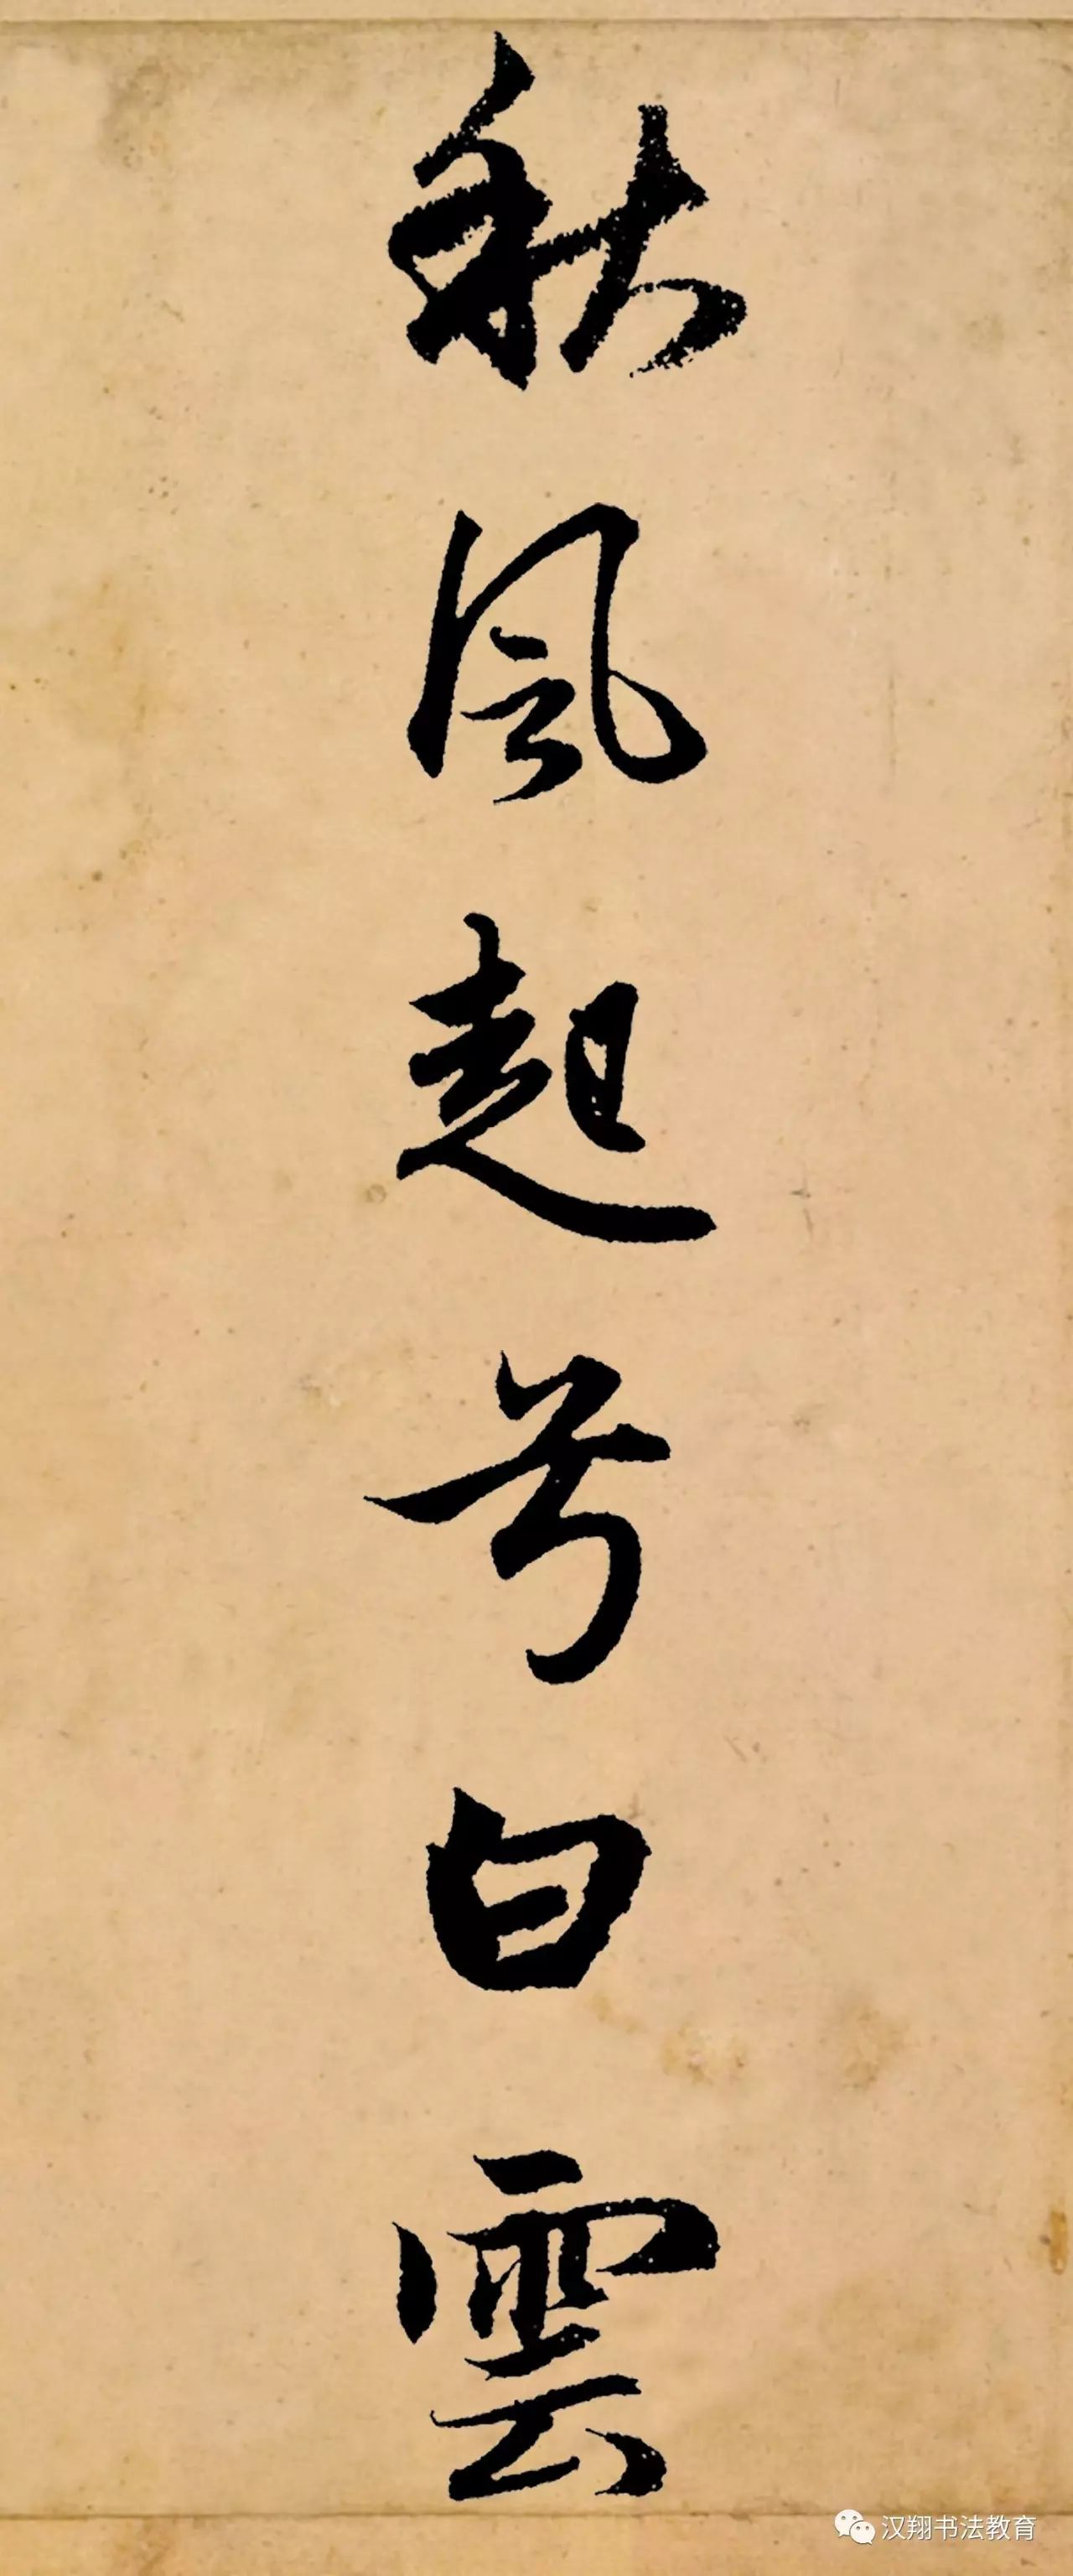 秋風起兮白雲
汉翔书法教育